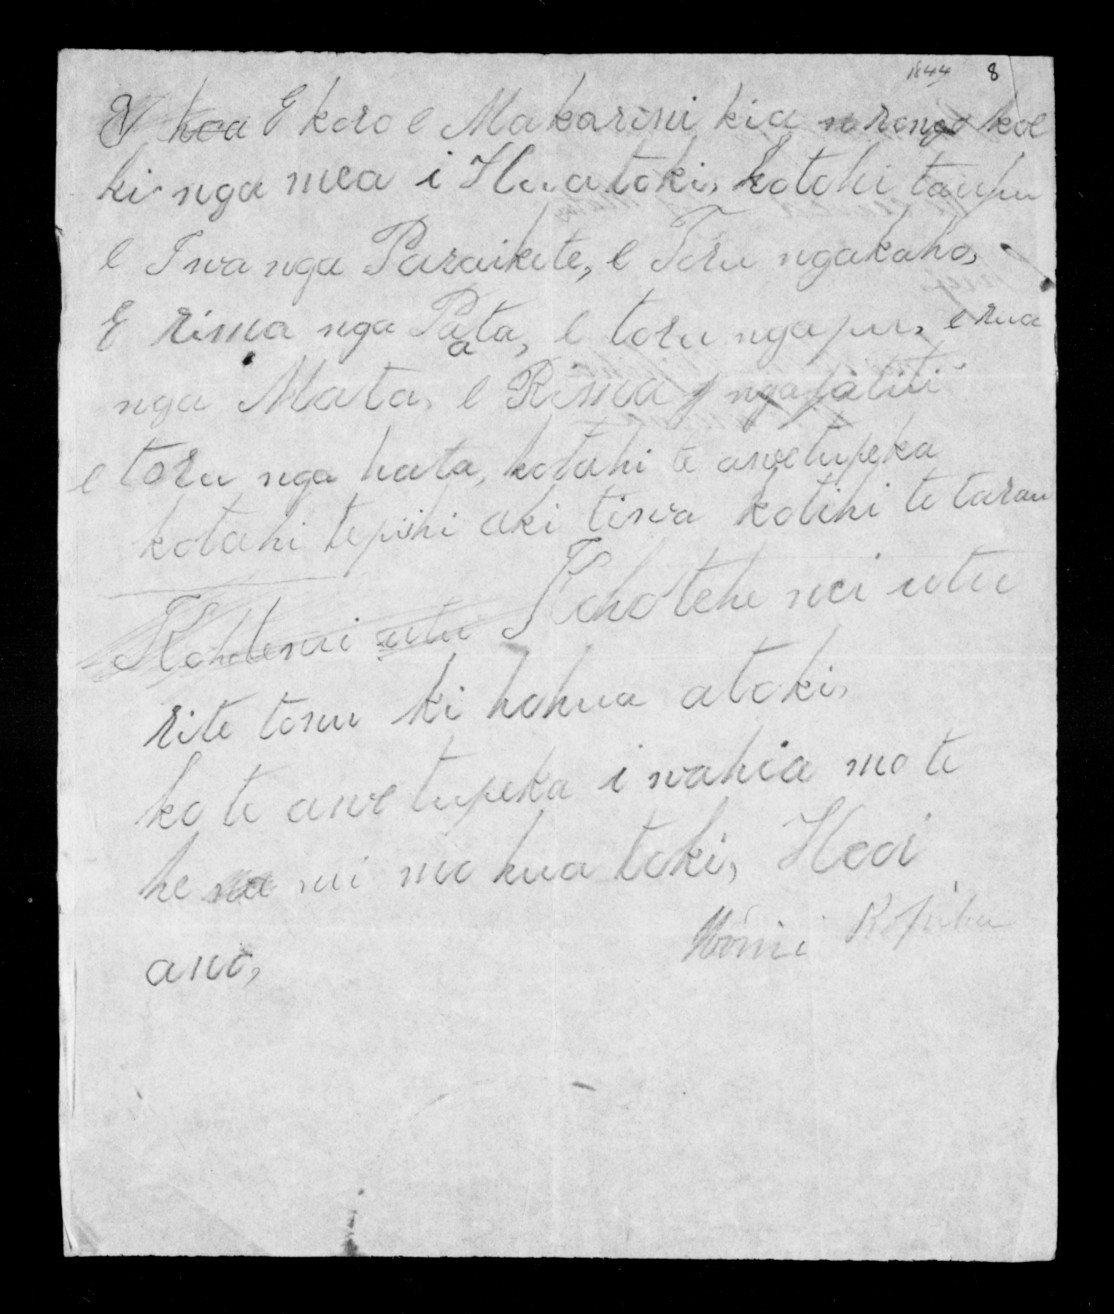 1844 8
E hoa E koro e Makarini kia rongo koe
ki nga mea i Huatoki, kotohi taupu
e Iwa nga Paraikete, e Toru ngakaho,
E rima nga Paata, e toru ngapu, e rua
nga Mata, e Rima nga
e toru nga hata, kotahi te awetupeka
kotahi tepihi aki tiwa kotihi te tarau
utu Kahotehe mei utu
rite tonu ki hohua atoki,
ko te awetupeka i wahia mo te
he mi mo hua toki, Heoi
ano,